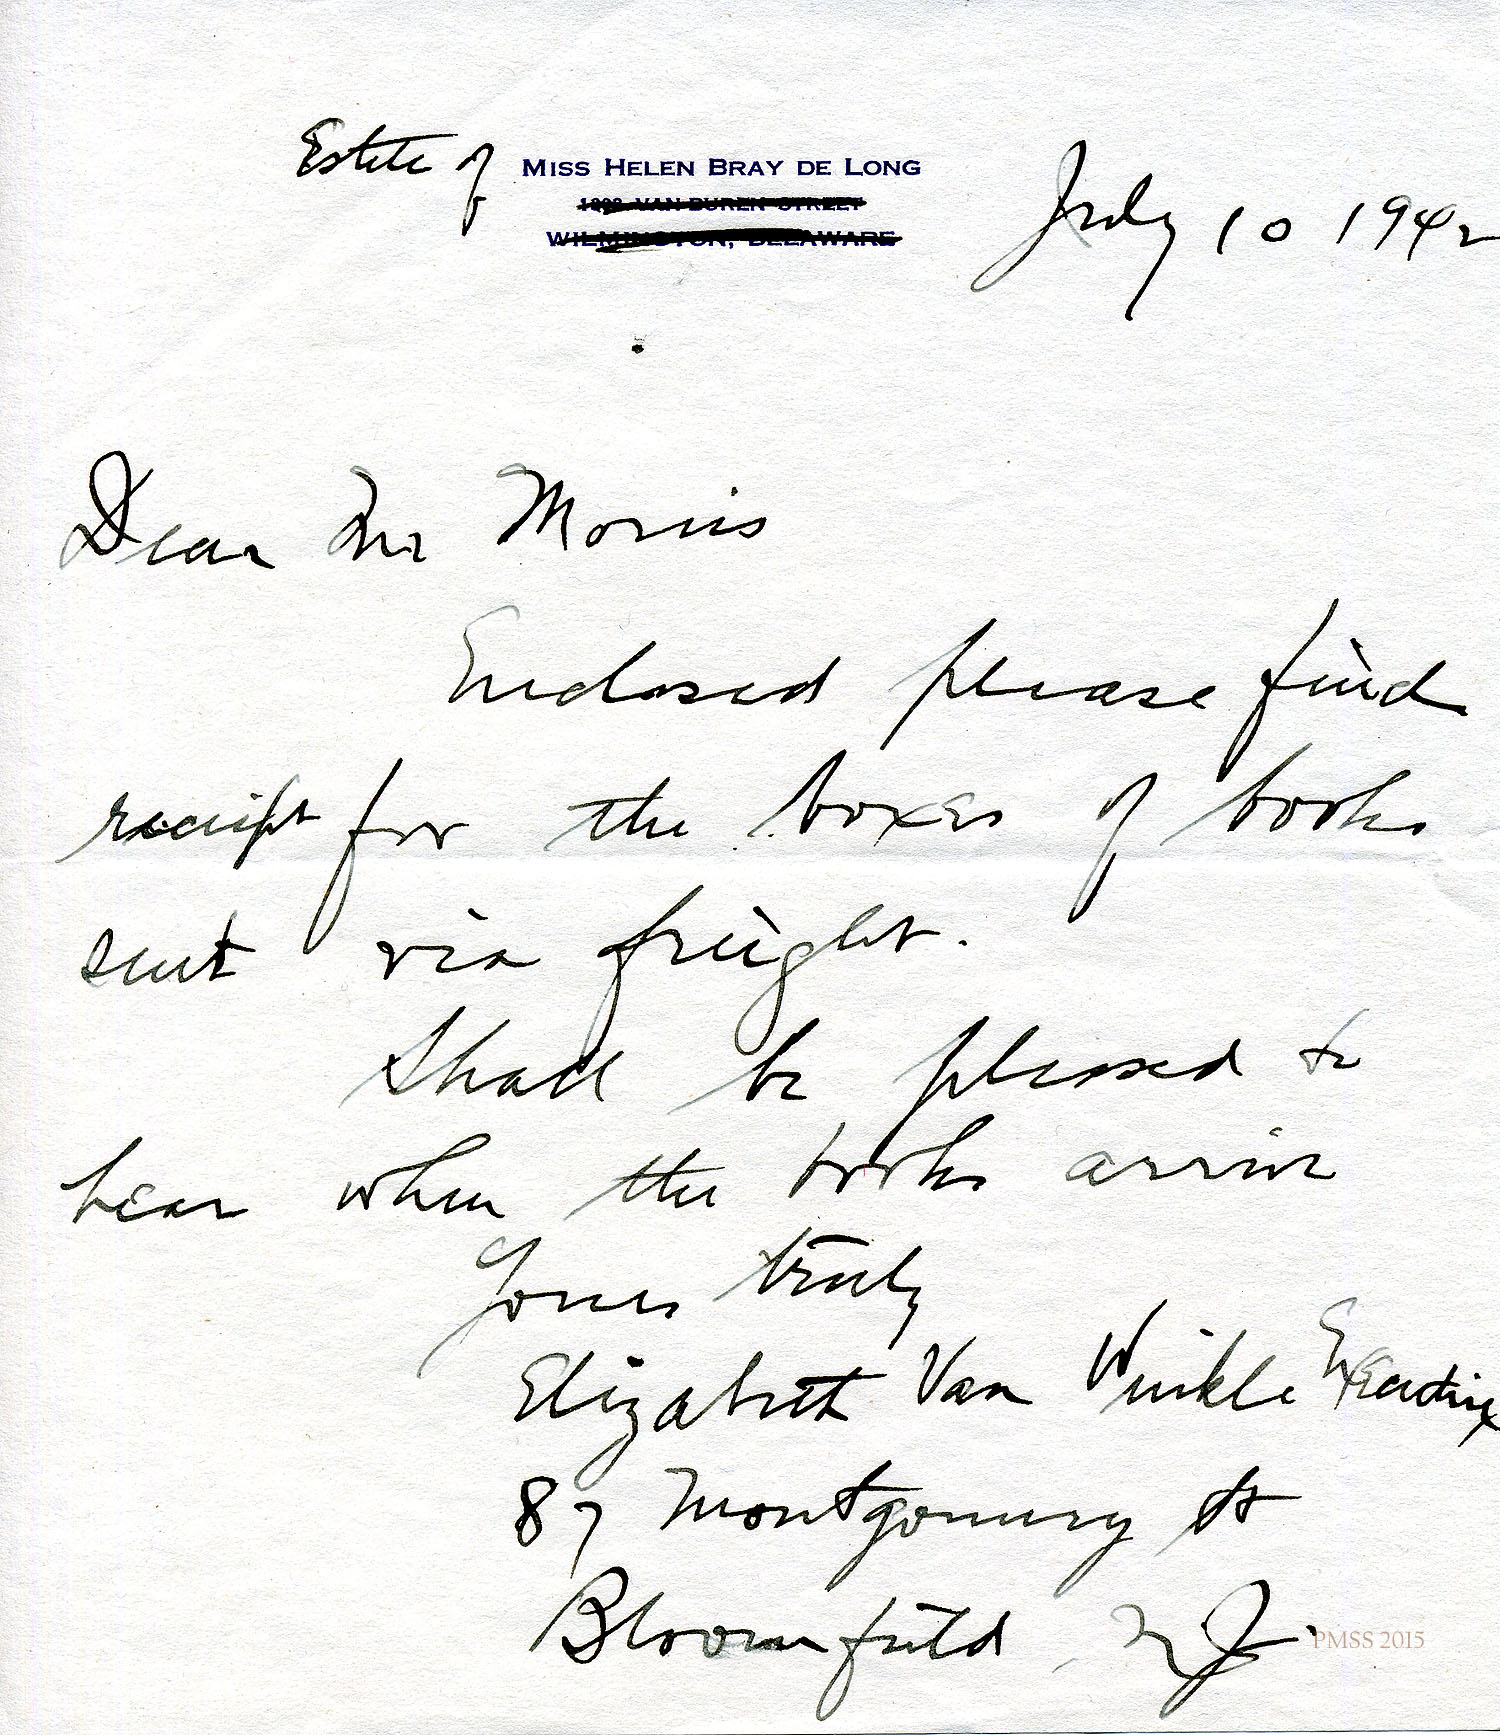 Estate of MISS HELEN BRAY DE LONG
VAN BUREN STREET
WILMINGTON, DELAWARE
July 10 1942
Dear Mr Morris
Enclosed please find
receipt for the boxes of books
sent via freight.
Shall be pleased to
hear when the books arrive
Yours truly
Elizabeth Van Winkle Executrix
87 Montgomery St
Bloomfield, N.J.
PMSS 2015